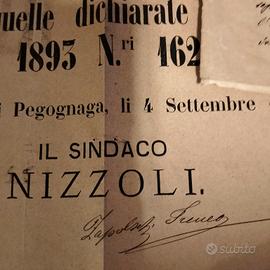 quelle dichiarate
1893 N.ri 162
Pegognaga, li 4 Settembre
IL SINDACO
NIZZOLI.
subito